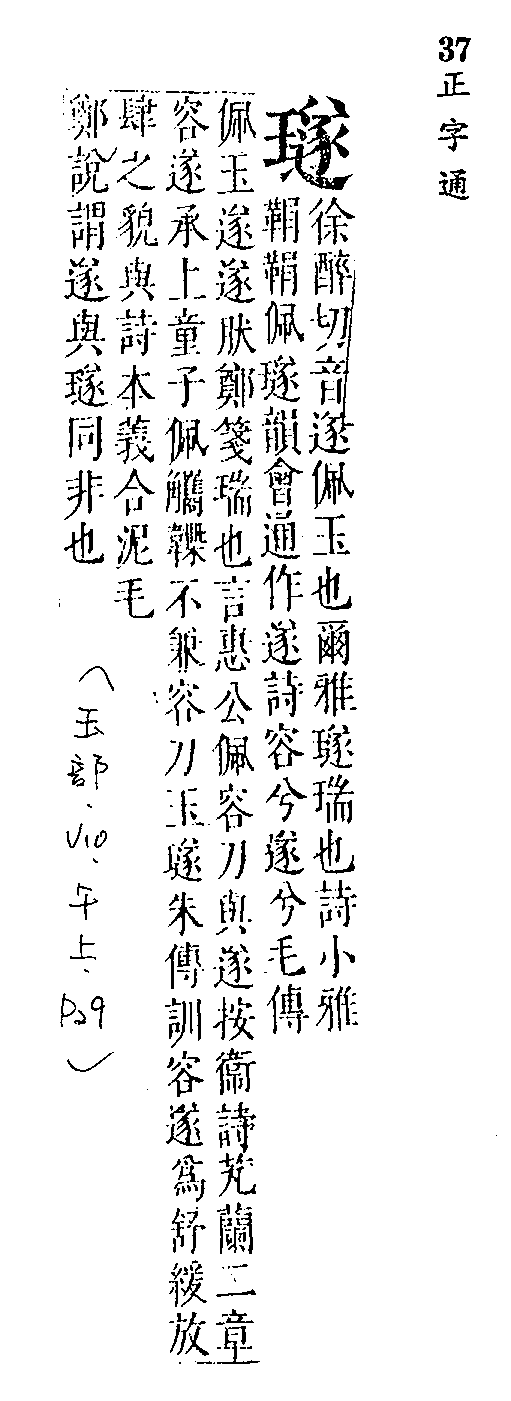 37正字通
璲徐醉切音遂佩玉也爾雅璲瑞也詩小雅
鞙鞙佩璲韻會通作遂詩容兮遂兮毛傳
佩玉遂遂肰鄭箋瑞也言惠公佩容刀與遂按衞詩芄蘭二章
容遂承上童子佩觿韘不兼容刀玉璲朱傳訓容遂爲舒緩放
肆之貌與詩本義合泥毛
鄭說謂遂與璲同非也
(玉部、V10、午上、P29)